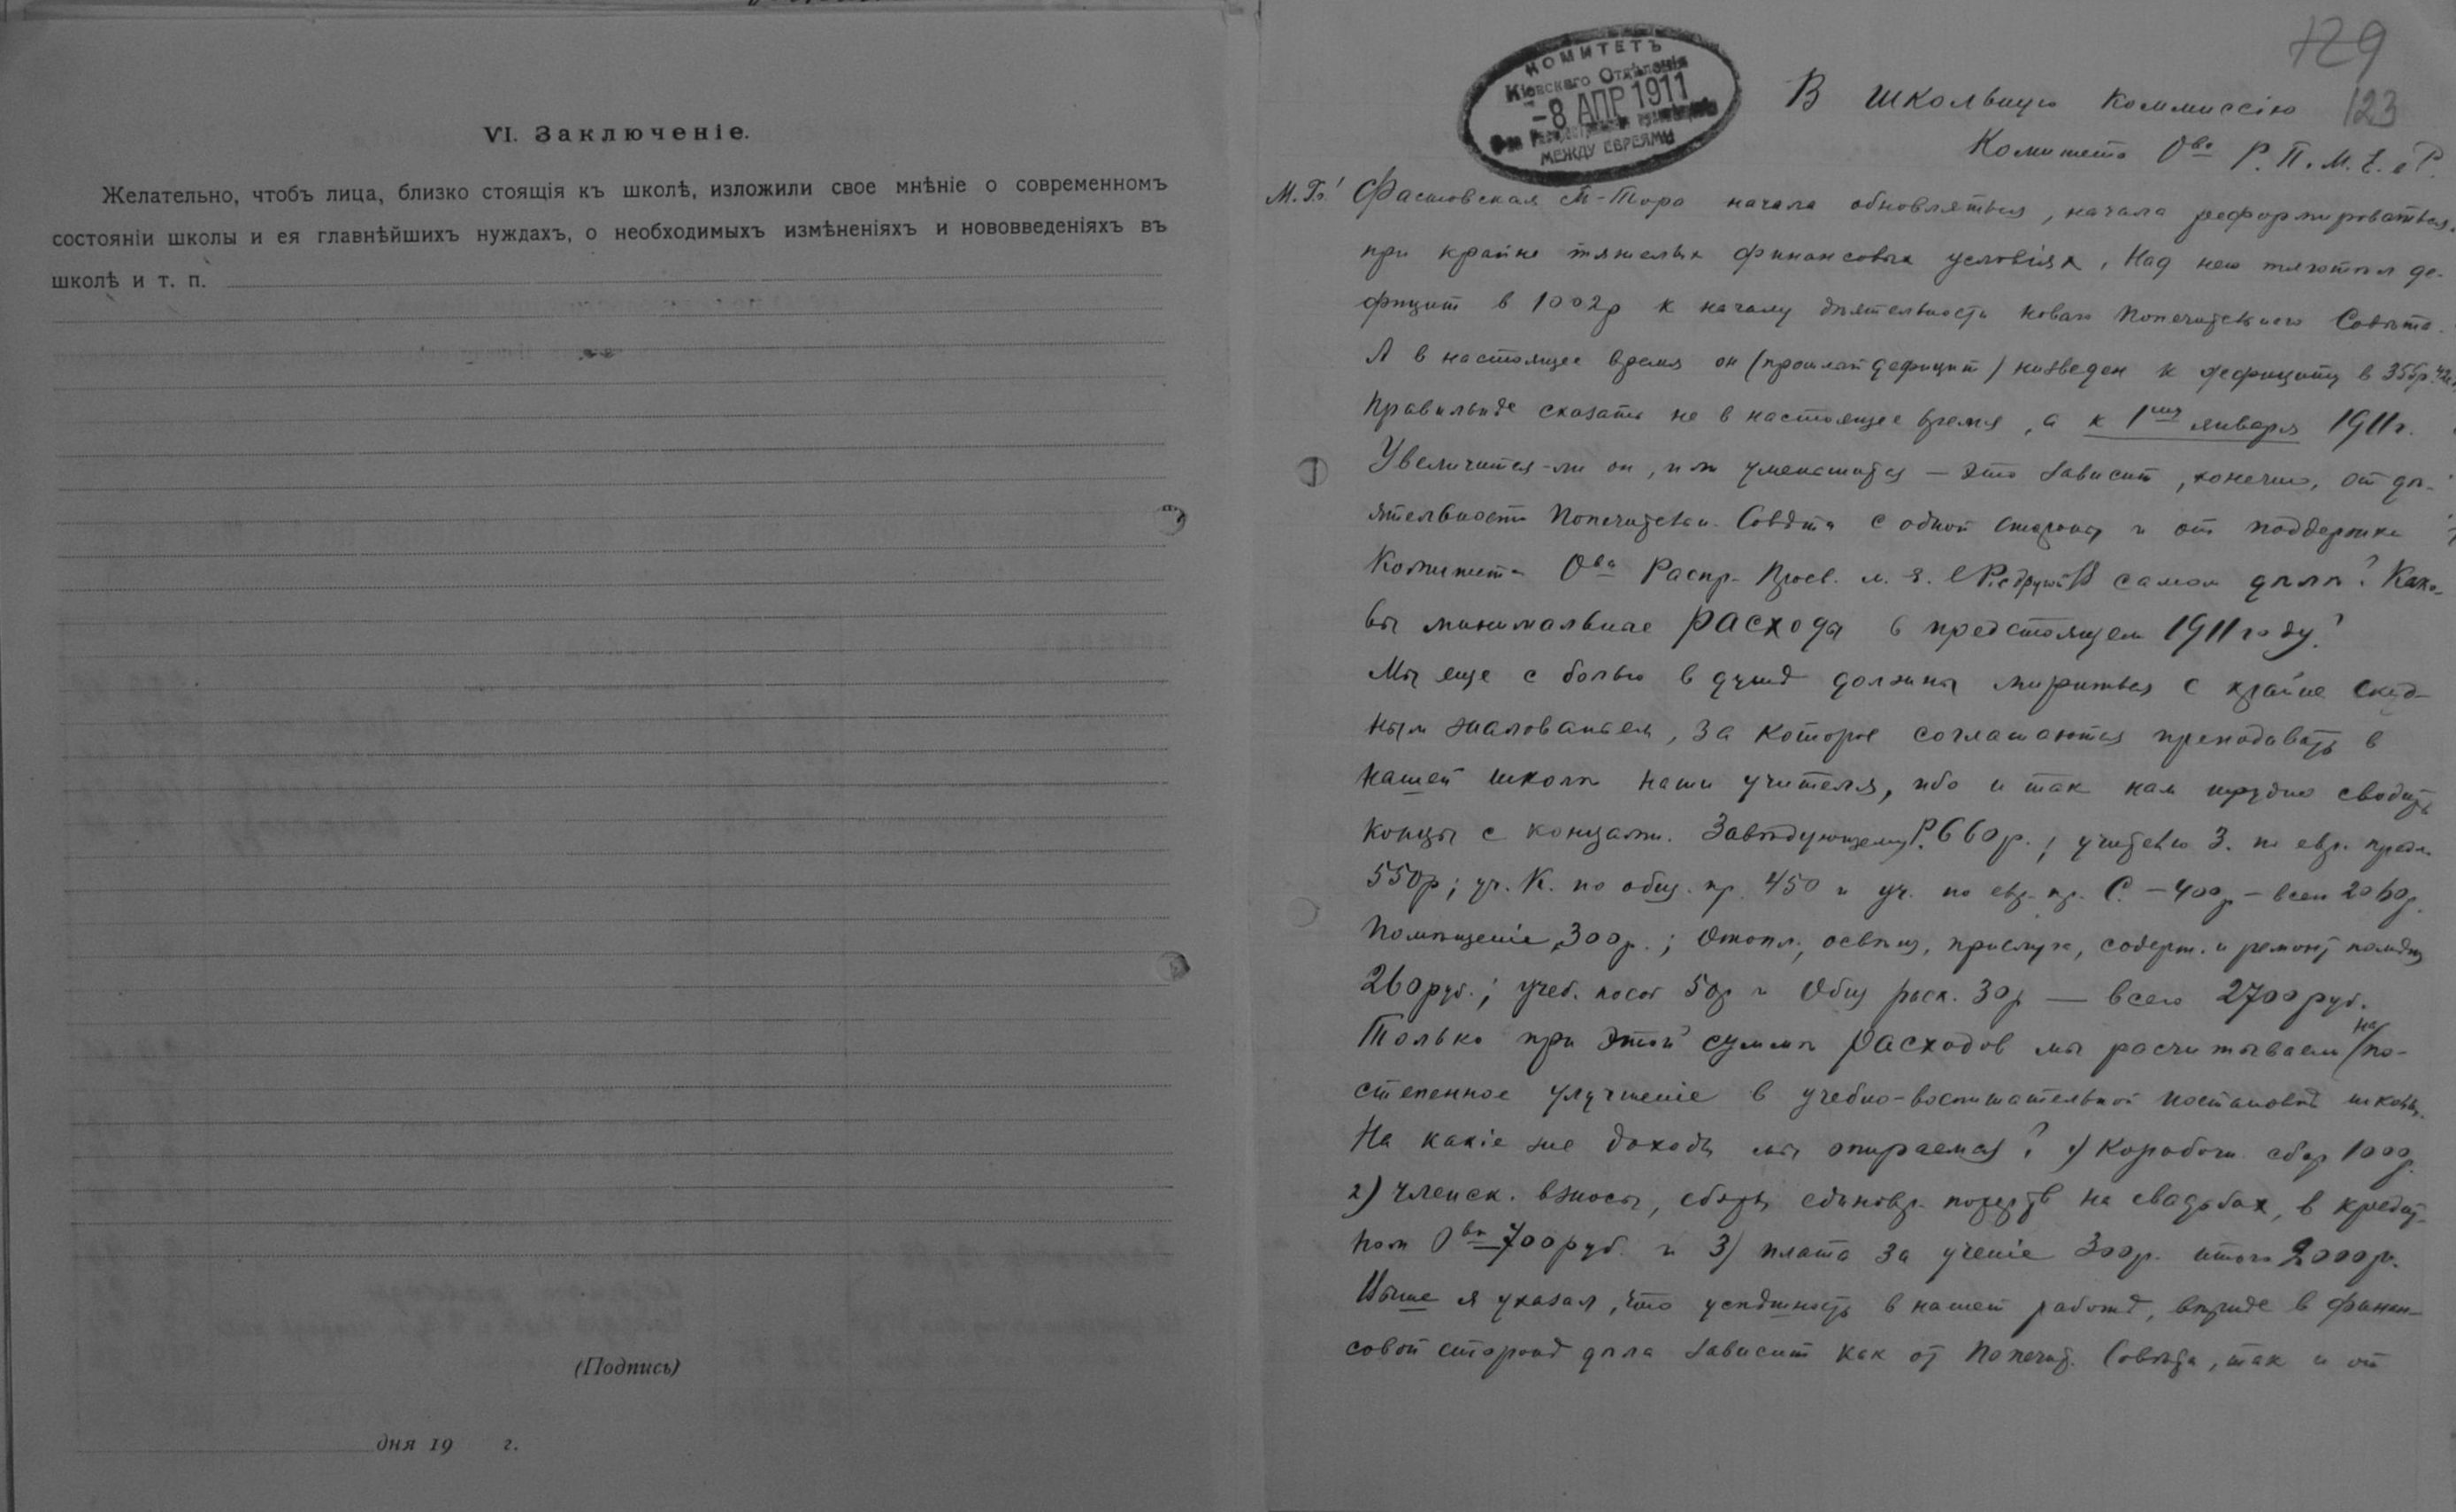 VI. Заключеніе.
Желательно, чтобъ лица, близко стоящія къ школѣ, изложили свое мнѣніе о современномъ
состояніи школы и ея главнѣйшихъ нуждахъ, о необходимыхъ измѣненіяхъ и нововведеніяхъ въ
школѣ и т. п.
(Подпись)
дня 19 г.
129
123
КОМИТЕТЪ
Кіевскаго Отдѣленія
-8 АПР 1911
МЕЖДУ ЕВРЕЯМИ
В Школьную Коммиссію
Комитета О-ва Р. П. М. Е. в Р.
М. Г.! Фастовская Т-Тора начала обновляться, начала реформироваться
при крайне тяжелых финансовых условіях. Над нею тяготѣл де-
фицит в 1002р к началу дѣятельности новаго Попечительнаго Совѣта.
А в настоящее время он (прошлый дефицит) низведен к дефициту в 355р. 42к.
Правильнѣе сказать не в настоящее время, а к 1му января 1911г.
Увеличится-ли он, или уменьшится — это зависит, конечно, от дѣ-
ятельности Попечительн. Совѣта с одной стороны и от поддержки
Комитета О-ва Распр. Просв. м. Е. в Р. с другой. В самом дѣлѣ? Како-
вы минимальные расходы в предстоящем 1911 году?
Мы еще с болью в душѣ должны мириться с крайне скуд-
ным жалованьем, за которое соглашаются преподавать в
нашей школѣ наши учителя, ибо и так нам трудно сводить
концы с концами. Завѣдующему Р. 660р.; учителю З. по евр. предм.
550р; уч. К. по общ. пр. 450 и уч. по евр. пр. С. — 400р — всего 2060р.
Помѣщеніе 300р.; Отопл., освѣщ, прислуга, содерж. и ремонт помѣщ
260 руб.; учеб. пособ 50р и Общ расх. 30р — всего 2700 руб.
Только при этой суммѣ расходов мы расчитываем на по-
степенное улучшеніе в учебно-воспитательной постановкѣ школы.
На какіе же доходы мы опираемся? 1) Коробочн сбор 1000р.
2) Членск. взносы, сборы, единовр. пожертв на свадьбах, в кредит-
ном О-вѣ 700 руб. и 3) плата за ученіе 300р. итого 2000р.
Выше я указал, что успѣшность в нашей работѣ, вѣрнѣе в финан-
совой сторонѣ дѣла зависит как от Попечит. Совѣта, так и от